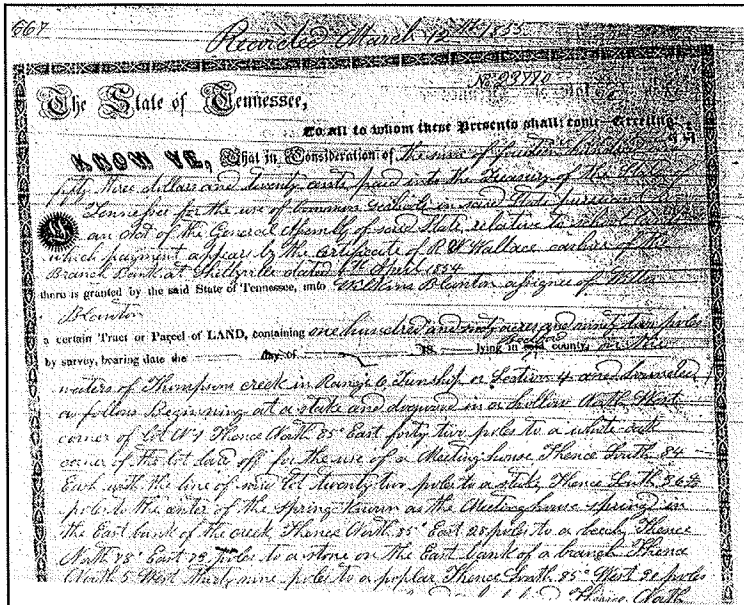 667
Recorded March 12th 1855
No 23770
The State of Tennessee,
To all to whom these Presents shall come—Greeting:
KNOW YE, That in Consideration of the sum of fourteen hundred
fifty three dollars and twenty cents paid into the Treasury of the State of
Tennessee for the use of common schools in said State pursuant to
an Act of the General Assembly of said State relative to
which payment appears by the certificate of R W Wallace cashier of the
Branch Bank at Shelbyville dated April 1854
there is granted by the said State of Tennessee, unto Williams Blanton assignee of
Blanton
a certain Tract or Parcel of LAND, containing one hundred and acres and ninety two poles
by survey, bearing date the day of 18 lying in said county, on the
waters of Thompson creek in Range 6 Township or Section 4 and bounded
as follows Beginning at a stake and dogwood in a hollow North West
corner of lot No 1 Thence North 85° East forty two poles to a white oak
corner of the lot laid off for the use of a Meeting house Thence South 84
East with the line of said lot twenty two poles to a stake, Thence South
poles to the center of the Spring known as the Meetinghouse spring in
the East bank of the creek, Thence North 85° East 28 poles to a beech, Thence
North 78° East poles to a stone on the East bank of a branch Thence
North 5 West thirty nine poles to a poplar Thence South 85° West poles
Thence North